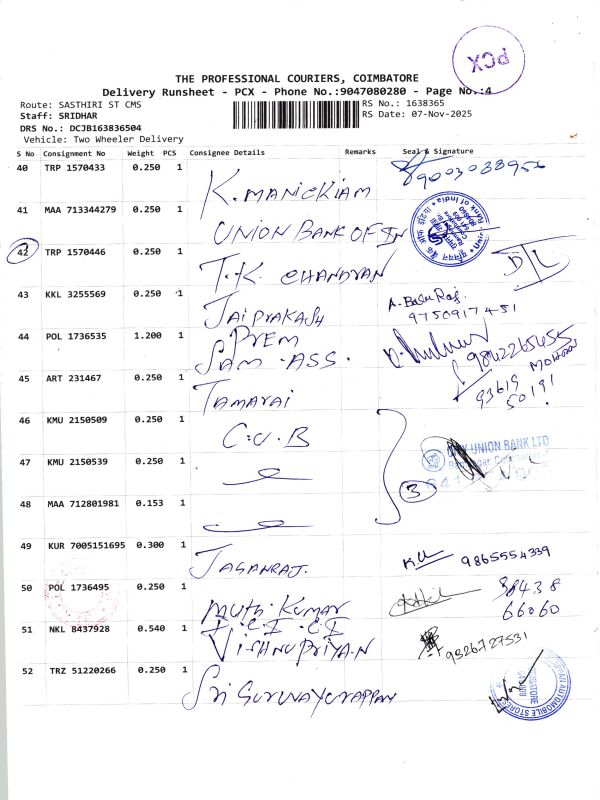 PCX
THE PROFESSIONAL COURIERS, COIMBATORE
Delivery Runsheet - PCX - Phone No.:9047080280 - Page No.:4
Route: SASTHIRI ST CMS
RS No.: 1638365
Staff: SRIDHAR
RS Date: 07-Nov-2025
DRS No.: DCJB163836504
Vehicle: Two Wheeler Delivery
S No Consignment No Weight PCS Consignee Details Remarks Seal & Signature
40 TRP 1570433 0.250 1 K. MANICKIAM
41 MAA 713344279 0.250 1 UNION BANK OF IN
42 TRP 1570446 0.250 1 T.K. CHANDRAN
43 KKL 3255569 0.250 1 JAIPRAKASH A. Basu Raj. 9750917451
44 POL 1736535 1.200 1 PREM SAM ASS. 9842265655
45 ART 231467 0.250 1 TAMARAI 93619 50191
46 KMU 2150509 0.250 1 C.U.B
47 KMU 2150539 0.250 1 3 CITY UNION BANK LTD
48 MAA 712801981 0.153 1
49 KUR 7005151695 0.300 1 JAGANRAJ. 9865554339
50 POL 1736495 0.250 1 Muth.Kumar 98438 66060
51 NKL 8437928 0.540 1 VISHNUPRIYA.N 9326727531
52 TRZ 51220266 0.250 1 Sri GURUVAYURAPPAN